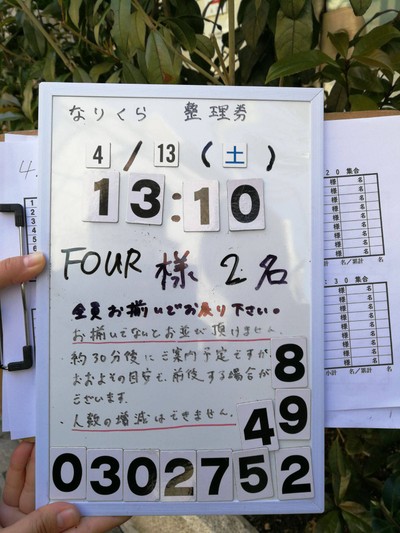 なりくら 整理券
4/13(土)
13:10
FOUR 様 2名
全員お揃いでお戻り下さい。
お揃いでないとお並び頂けません。
約30分後にご案内予定ですが、
おおよその目安で、前後する場合が
ございます。
・人数の増減はできません。
8
49
0302752
20 集合
様 名
様 名
様 名
様 名
様 名
様 名
名/累計 名
30 集合
様 名
様 名
様 名
様 名
様 名
様 名
小計 名/累計 名
4.
1
2
3
4
5
6